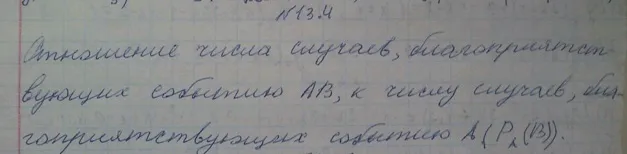 N13.4
Отношение числа случаев, благоприятст
вующих событию AB, к числу случаев, бла-
гоприятствующих событию A (P_A(B)).